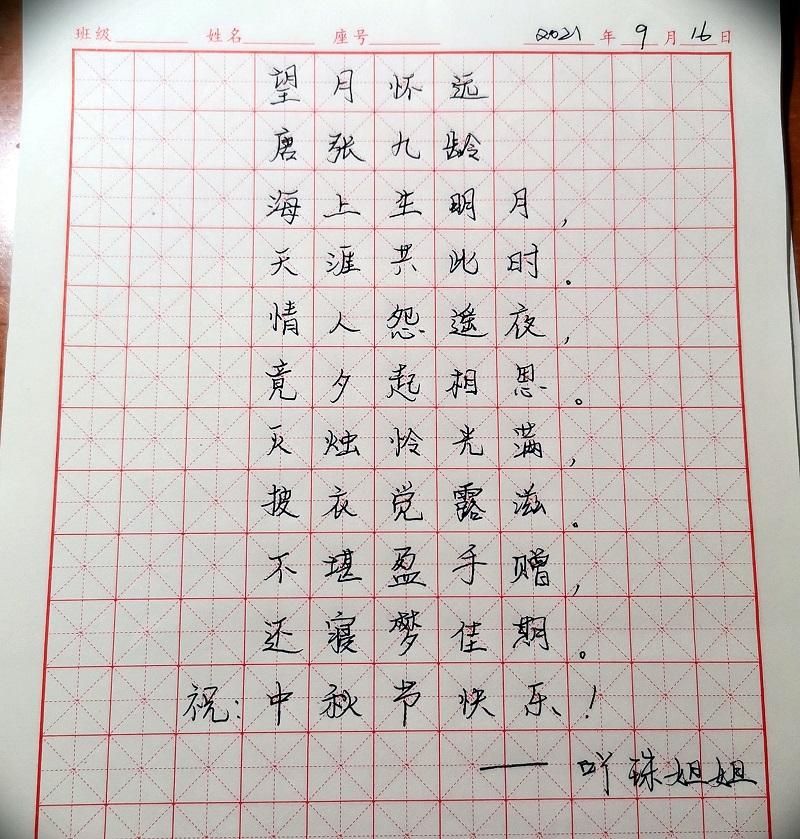 班级 姓名 座号 2021 年 9 月 16 日
望月怀远
唐张九龄
海上生明月，
天涯共此时。
情人怨遥夜，
竟夕起相思。
灭烛怜光满，
披衣觉露滋。
不堪盈手赠，
还寝梦佳期。
祝：中秋节快乐！
——吖珠姐姐